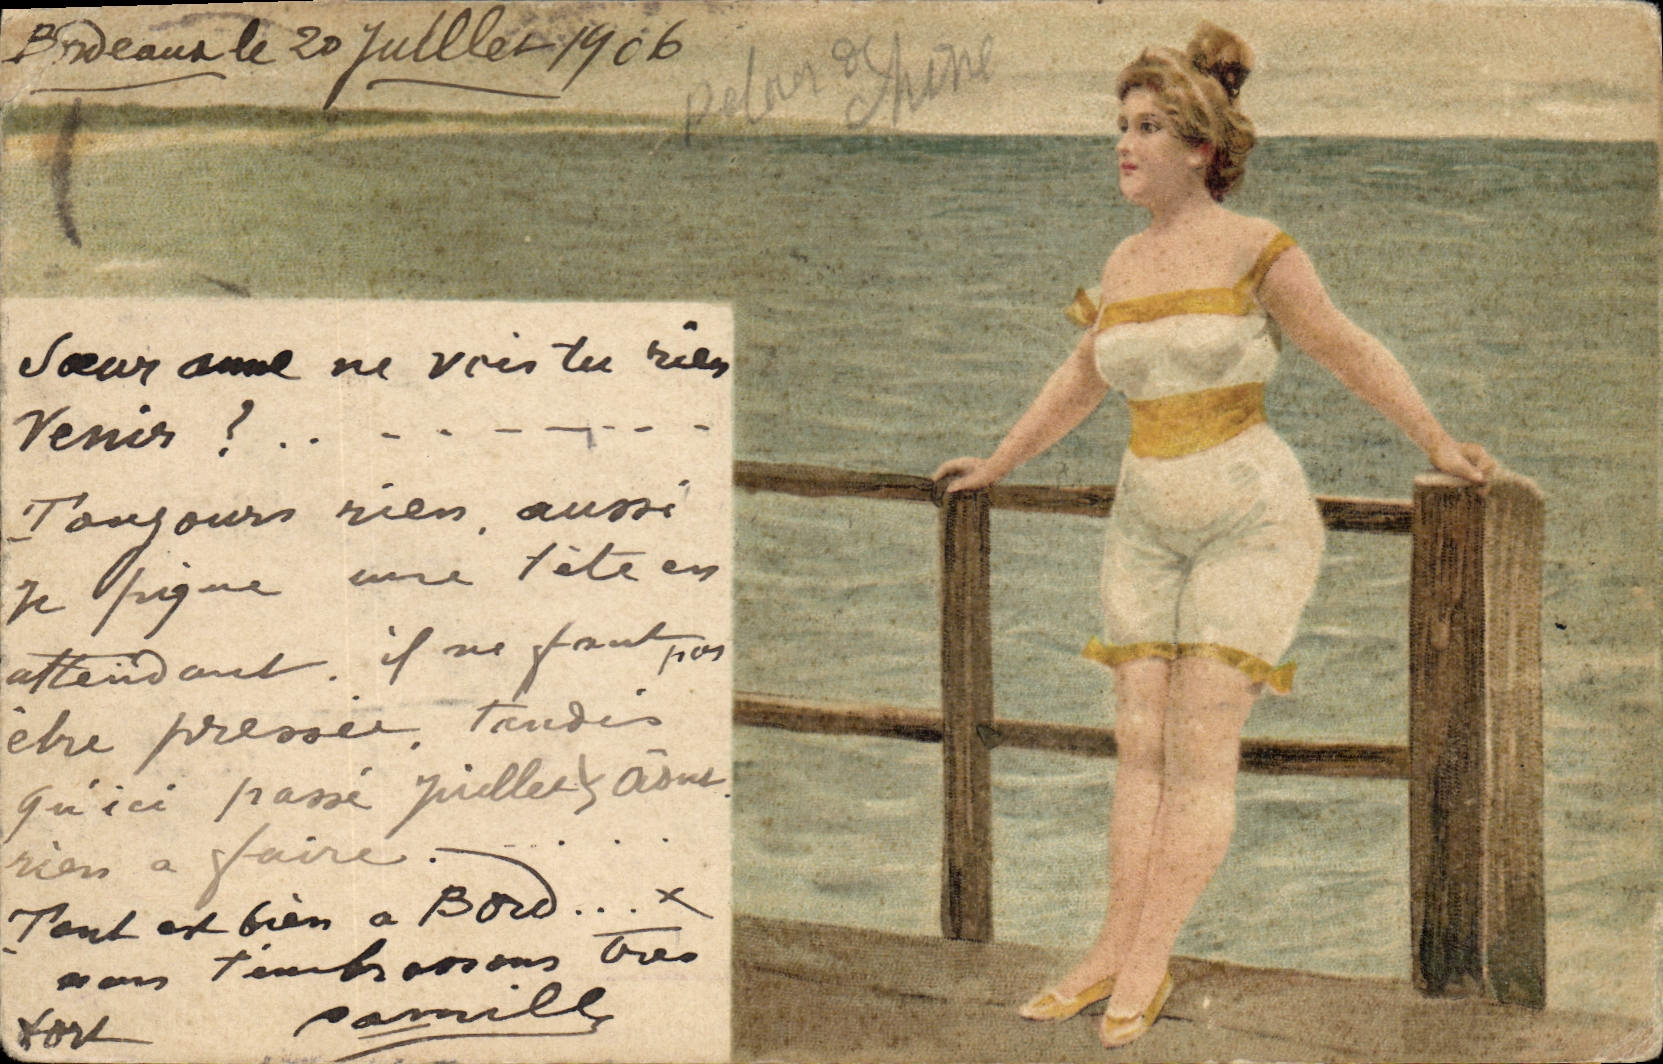 Bordeaux le 20 Juillet 1906
Retour de Chine
Sœur anne ne vois tu rien
Venir ? .. - - - - - - - -
Toujours rien, aussi
je pique une tête en
attendant. il ne faut pas
être pressée, tandis
qu'ici passé Juillet & Août.
rien a faire. . . .
Tout est bien a Bord ... x
nous t'embrassons très
fort Camille